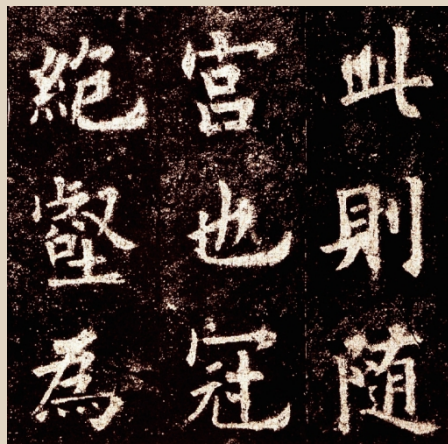 此則隨
宮也冠
絶壑為